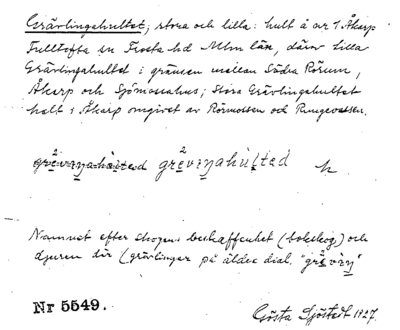 Grävlingehultet, stora och lilla: hult å nr 1 Åkarp
Fulltofta sn Frosta hd Mlm län, därav lilla
Grävlingahultet i gränsen mellan Södra Rörum,
Åkarp och Sjömossahus; Stora Grävlingehultet
helt i Åkarp omgivet av Rörmossen och
Namnet efter skogens beskaffenhet (bokskog) och
djuren där (grävlingar på äldre dial.
Nr 5549.
Gösta Sjöstedt 1927.